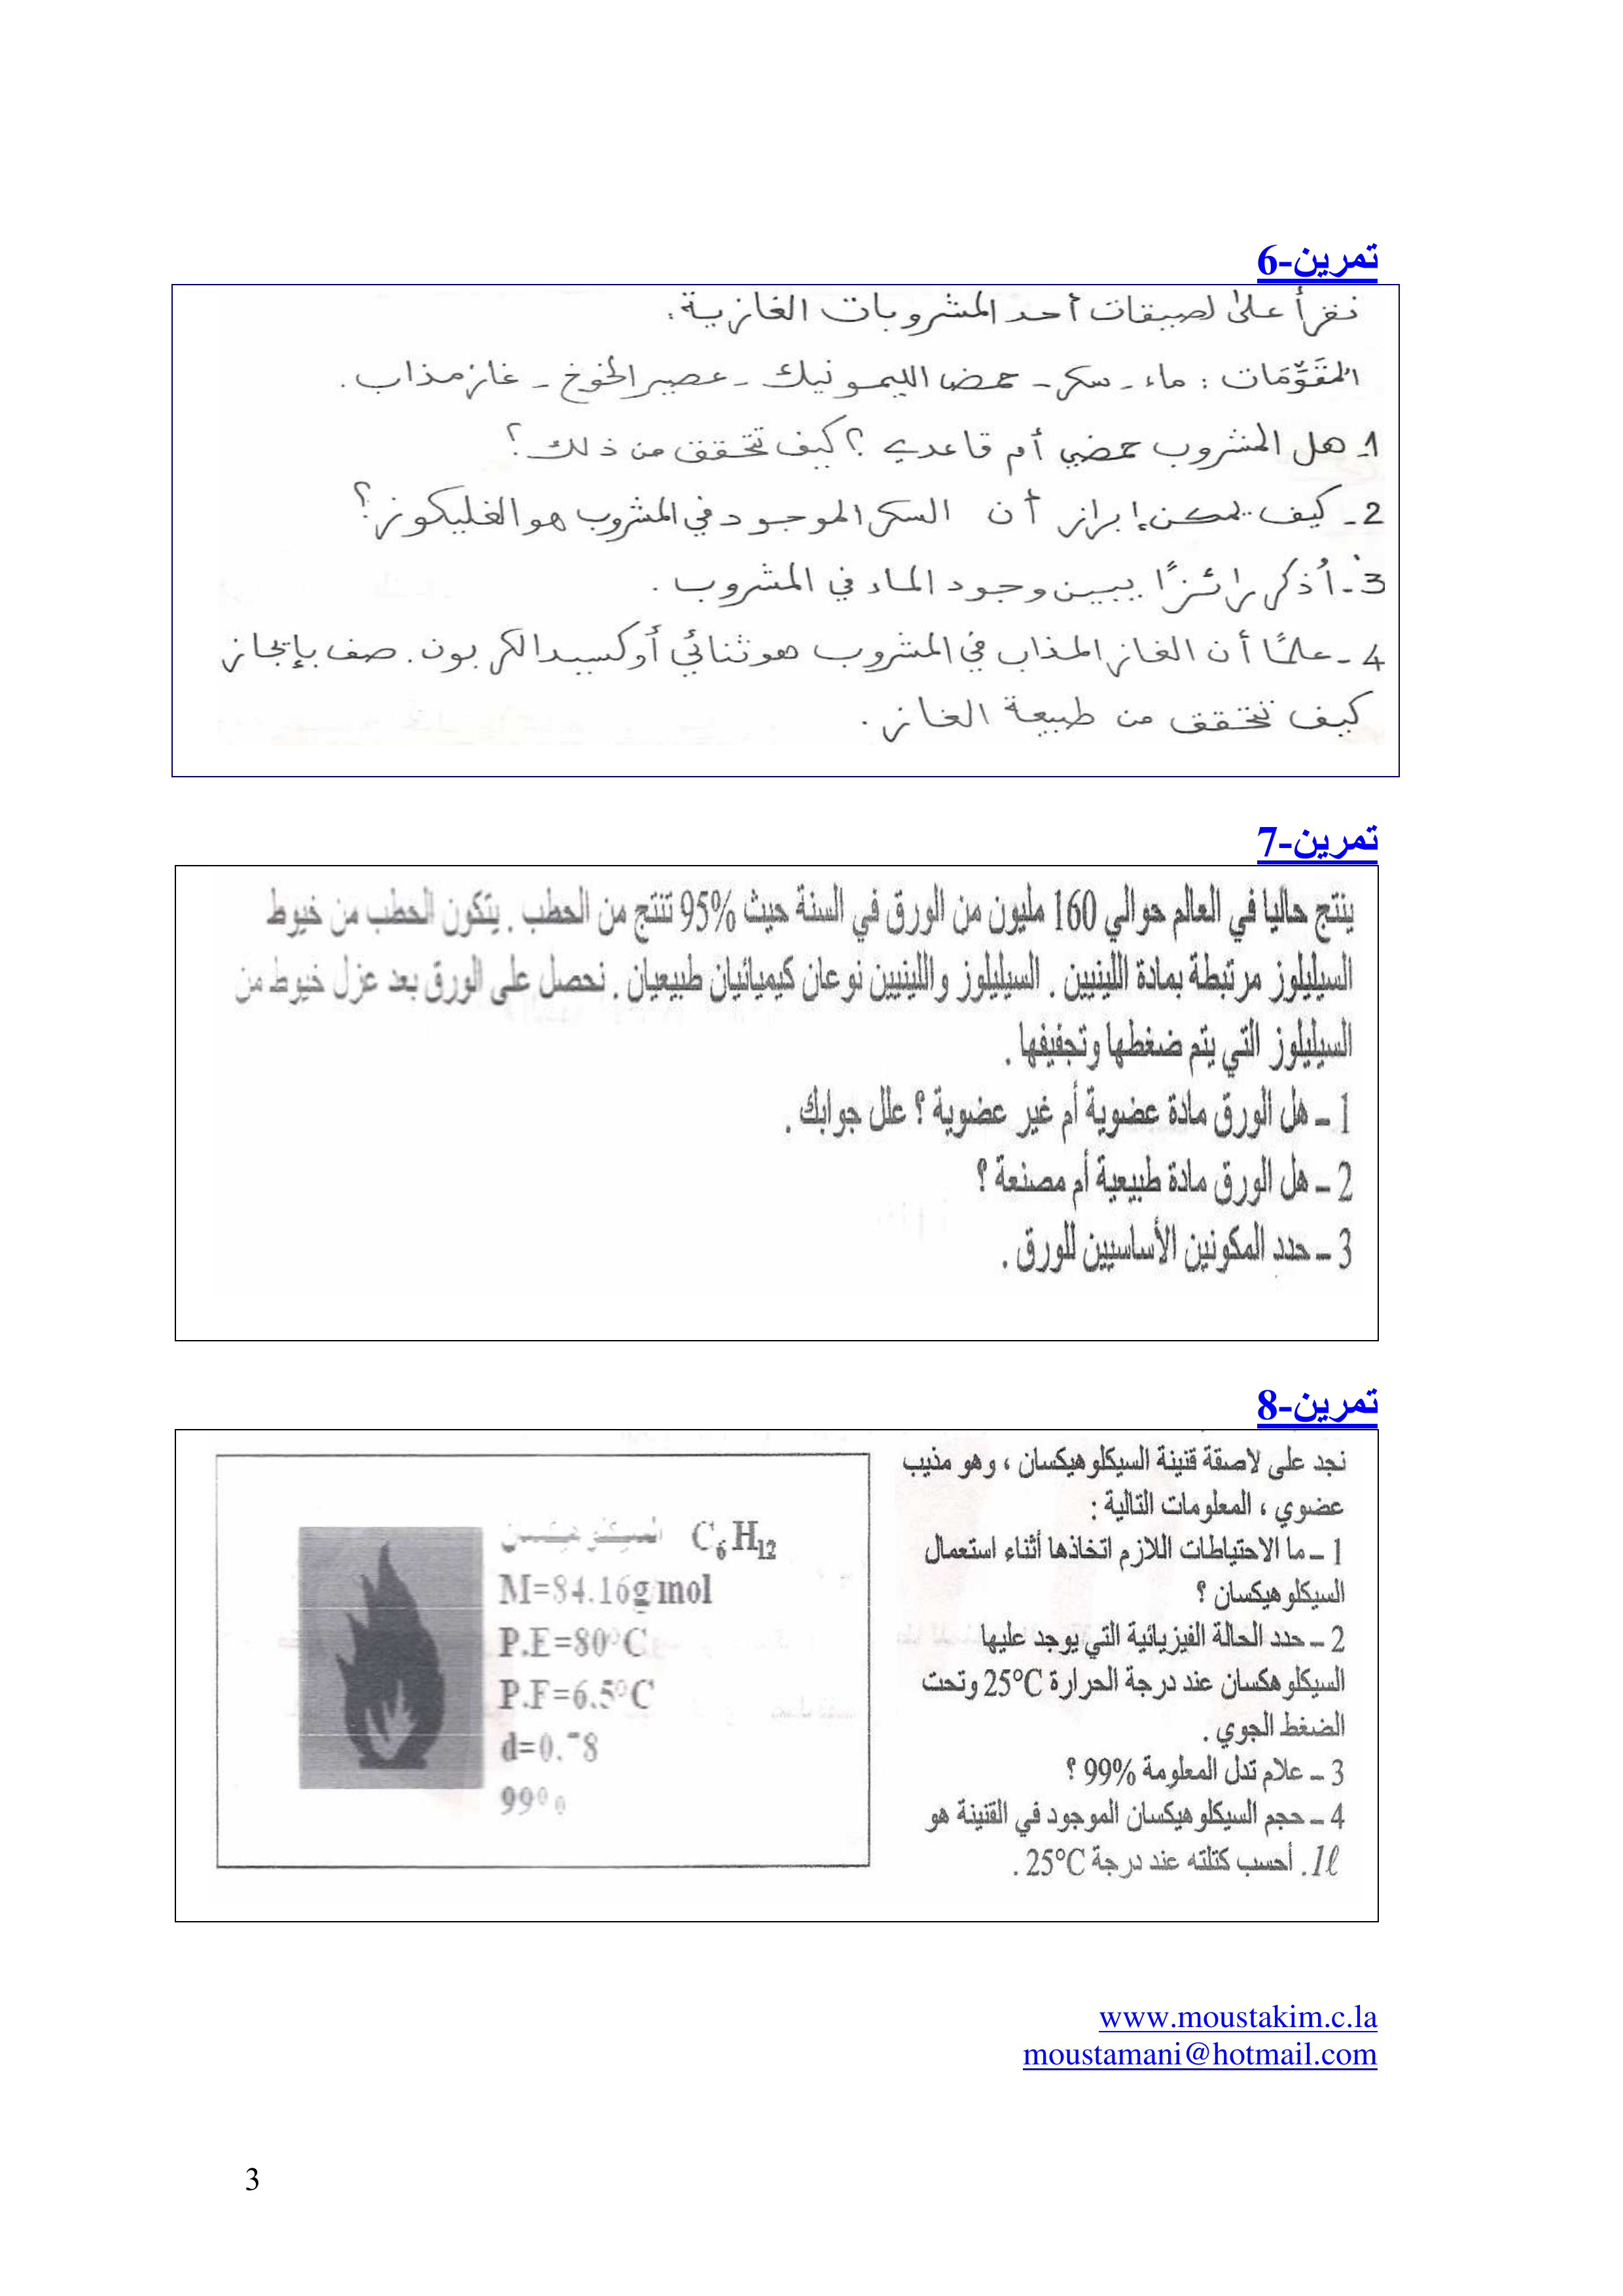 تمرين-6
نقرأ على لصيقات أحد المشروبات الغازية:
المقَوِّمَات : ماء - سكر - حمض الليمونيك - عصير الخوخ - غاز مذاب .
1- هل المشروب حمضي أم قاعدي ؟ كيف تتحقق من ذلك ؟
2- كيف يمكن إبراز أن السكر الموجود في المشروب هو الغليكوز ؟
3- أُذكر رائزًا يبين وجود الماء في المشروب .
4- علمًا أن الغاز المذاب في المشروب هو ثنائي أوكسيد الكربون. صف بإيجاز
كيف تتحقق من طبيعة الغاز .
تمرين-7
ينتج حاليا في العالم حوالي 160 مليون من الورق في السنة حيث %95 تنتج من الحطب . يتكون الحطب من خيوط
السيليلوز مرتبطة بمادة اللينيين . السيليلوز واللينيين نوعان كيميائيان طبيعيان . نحصل على الورق بعد عزل خيوط من
السيليلوز التي يتم ضغطها وتجفيفها .
1 – هل الورق مادة عضوية أم غير عضوية ؟ علل جوابك .
2 – هل الورق مادة طبيعية أم مصنعة ؟
3 – حدد المكونين الأساسيين للورق .
تمرين-8
نجد على لاصقة قنينة السيكلوهيكسان ، وهو مذيب
عضوي ، المعلومات التالية :
1 – ما الاحتياطات اللازم اتخاذها أثناء استعمال
السيكلوهيكسان ؟
2 – حدد الحالة الفيزيائية التي يوجد عليها
السيكلوهكسان عند درجة الحرارة 25°C وتحت
الضغط الجوي .
3 – علام تدل المعلومة %99 ؟
4 – حجم السيكلوهيكسان الموجود في القنينة هو
1ℓ. أحسب كتلته عند درجة 25°C .
C₆H₁₂
M=84.16g/mol
P.E=80°C
P.F=6.5°C
d=0.78
99%
www.moustakim.c.la
moustamani@hotmail.com
3